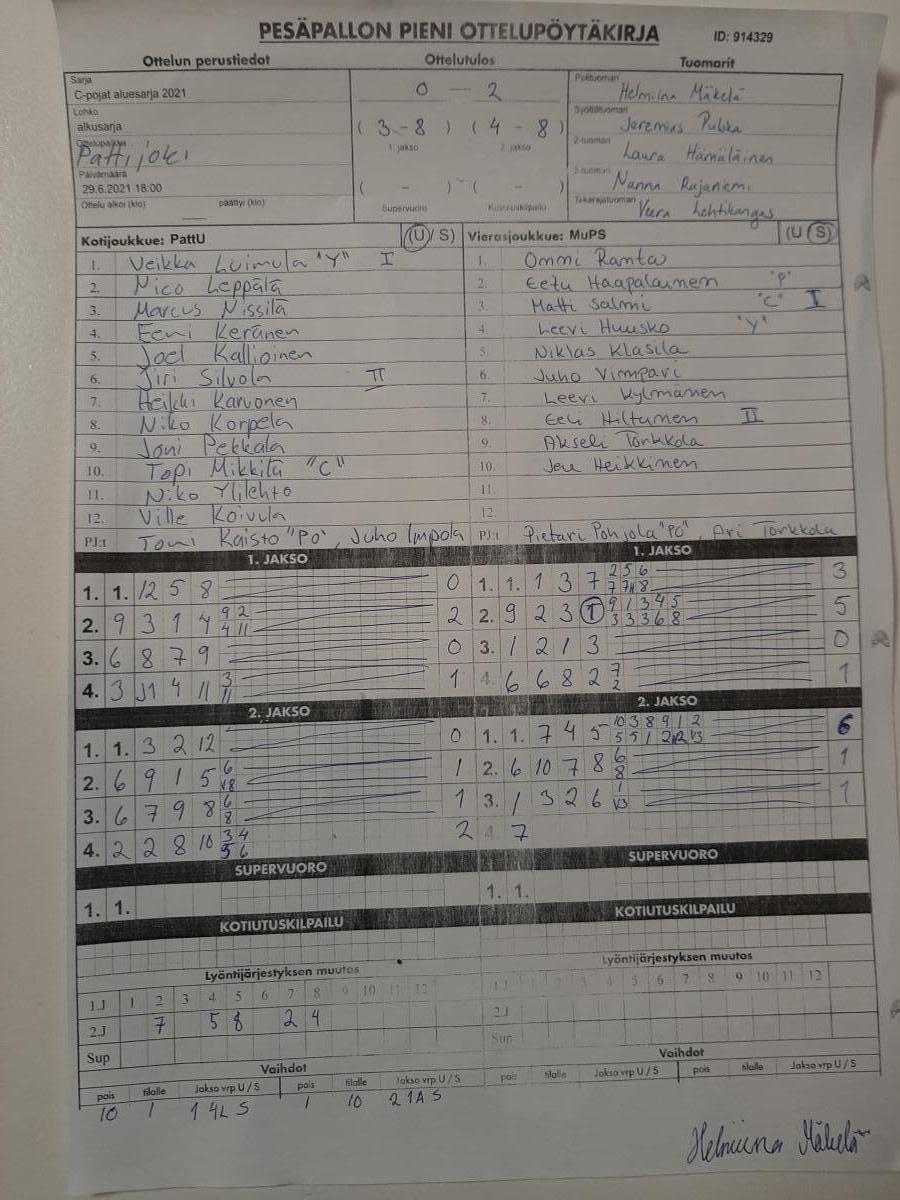 PESÄPALLON PIENI OTTELUPÖYTÄKIRJA ID: 914329
Ottelun perustiedot Ottelutulos Tuomarit
Sarja
C-pojat aluesarja 2021
Lohko
alkusarja
Ottelupaikka
Pattijoki
Päivämäärä
29.6.2021 18:00
Ottelu alkoi (klo) päättyi (klo)
0 — 2
( 3 - 8 ) ( 4 - 8 )
1. jakso 2. jakso
( - ) ( - )
Supervuoro Kotiutuskilpailu
Pelituomari
Helmiina Mäkelä
Syöttötuomari
Jeremias Pulkka
2-tuomari
Laura Hämäläinen
3-tuomari
Nanna Rajaniemi
Takarajatuomari
Veera Lehtikangas
Kotijoukkue: PattU (U/ S)
1. Veikka Luimula "Y" I
2. Nico Leppälä
3. Marcus Nissilä
4. Eeni Keränen
5. Joel Kallioinen
6. Jiri Silvola II
7. Heikki Karvonen
8. Niko Korpela
9. Joni Pekkala
10. Topi Mikkilä "C"
11. Niko Ylilehto
12. Ville Koivula
PJ:t Toni Kaisto "PO", Juho Impola
Vierasjoukkue: MuPS (U S)
1. Ommi Ranta
2. Eetu Haapalainen "P"
3. Matti Salmi "C" I
4. Leevi Huusko "Y"
5. Niklas Klasila
6. Juho Vimpari
7. Leevi Kylmänen
8. Eeli Hiltunen II
9. Akseli Torkkola
10. Jere Heikkinen
11.
12.
PJ:t Pietari Pohjola "PO", Ari Torkkola
1. JAKSO 1. JAKSO
1. 1. 12 5 8 0
2. 9 3 1 4 9 2 4 11 2
3. 6 8 7 9 0
4. 3 4 11 3 11 1
1. 1. 1 3 7 2 5 6 7 8 3
2. 9 2 3 1 9 1 3 4 5 3 3 3 6 8 5
3. 1 2 1 3 0
4. 6 6 8 2 7 2 1
2. JAKSO 2. JAKSO
1. 1. 3 2 12 0
2. 6 9 1 5 6 1
3. 6 7 9 8 6 8 1
4. 2 2 8 10 3 4 5 6 2
1. 1. 7 4 5 10 3 8 9 1 2 5 5 1 2 6
2. 6 10 7 8 6 8 1
3. 1 3 2 6 1 1
4. 7
SUPERVUORO SUPERVUORO
1. 1. 1. 1.
KOTIUTUSKILPAILU KOTIUTUSKILPAILU
Lyöntijärjestyksen muutos Lyöntijärjestyksen muutos
1.J 1 2 3 4 5 6 7 8 9 10 11 12 1.J 1 2 3 4 5 6 7 8 9 10 11 12
2.J 7 5 8 2 4 2.J
Sup Sup
Vaihdot Vaihdot
pois tilalle Jakso vrp U / S pois tilalle Jakso vrp U / S pois tilalle Jakso vrp U / S pois tilalle Jakso vrp U / S
10 1 1 4L S 1 10 2 1A S
Helmiina Mäkelä